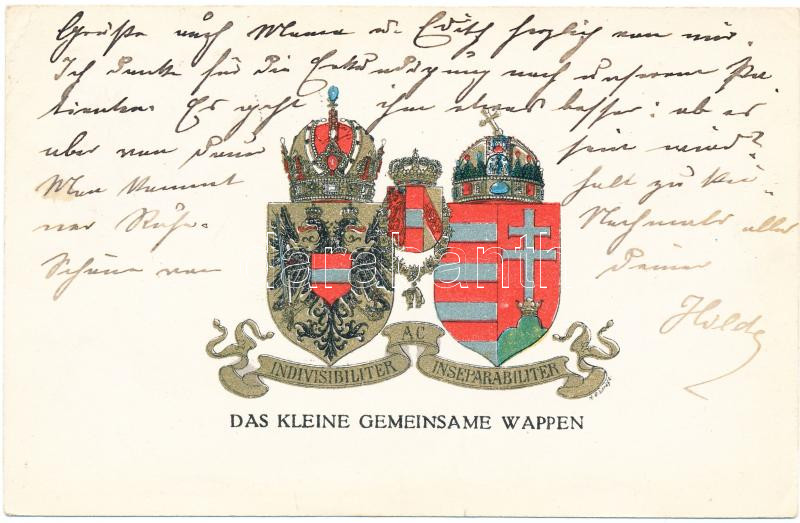 Grüße auch Mama u. Edith herzlich von mir.
Ich danke für die Erkundigung nach unserem Pa-
tienten. Es geht ihm etwas besser; ob es
aber von Dauer sein wird?
Man kommt halt zu kei-
ner Ruhe. Nochmals alles
Schöne von Deiner
Hilde
AC
INDIVISIBILITER INSEPARABILITER
DAS KLEINE GEMEINSAME WAPPEN